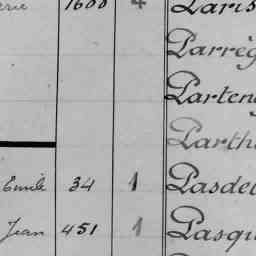 1688 4 Paris
Parrèg
Parten
Parth
Emile 34 1 Pasde
Jean 451 1 Pasqu